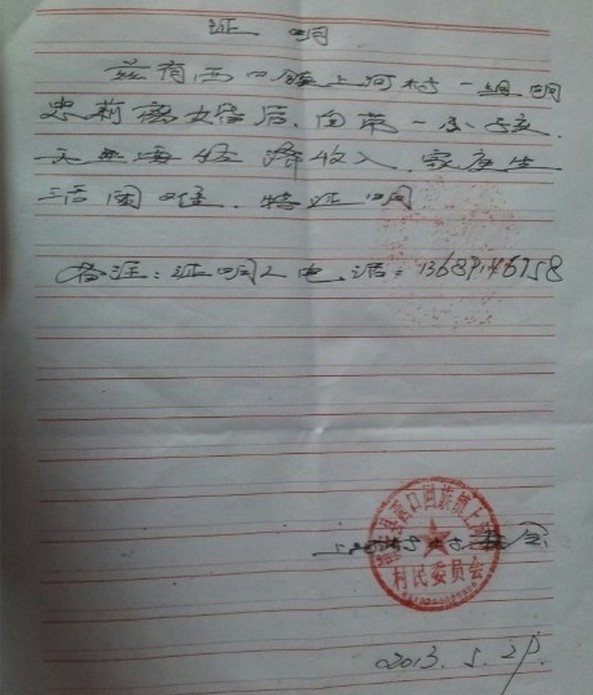 证 明
兹有西口镇上河村一组明
忠莉离婚后、自带一小孩.
无经济收入、家庭生
活困难. 特证明
备注：证明人电话：13689146758
县西口回族镇上
村委会
村民委员会
2013.5.29.